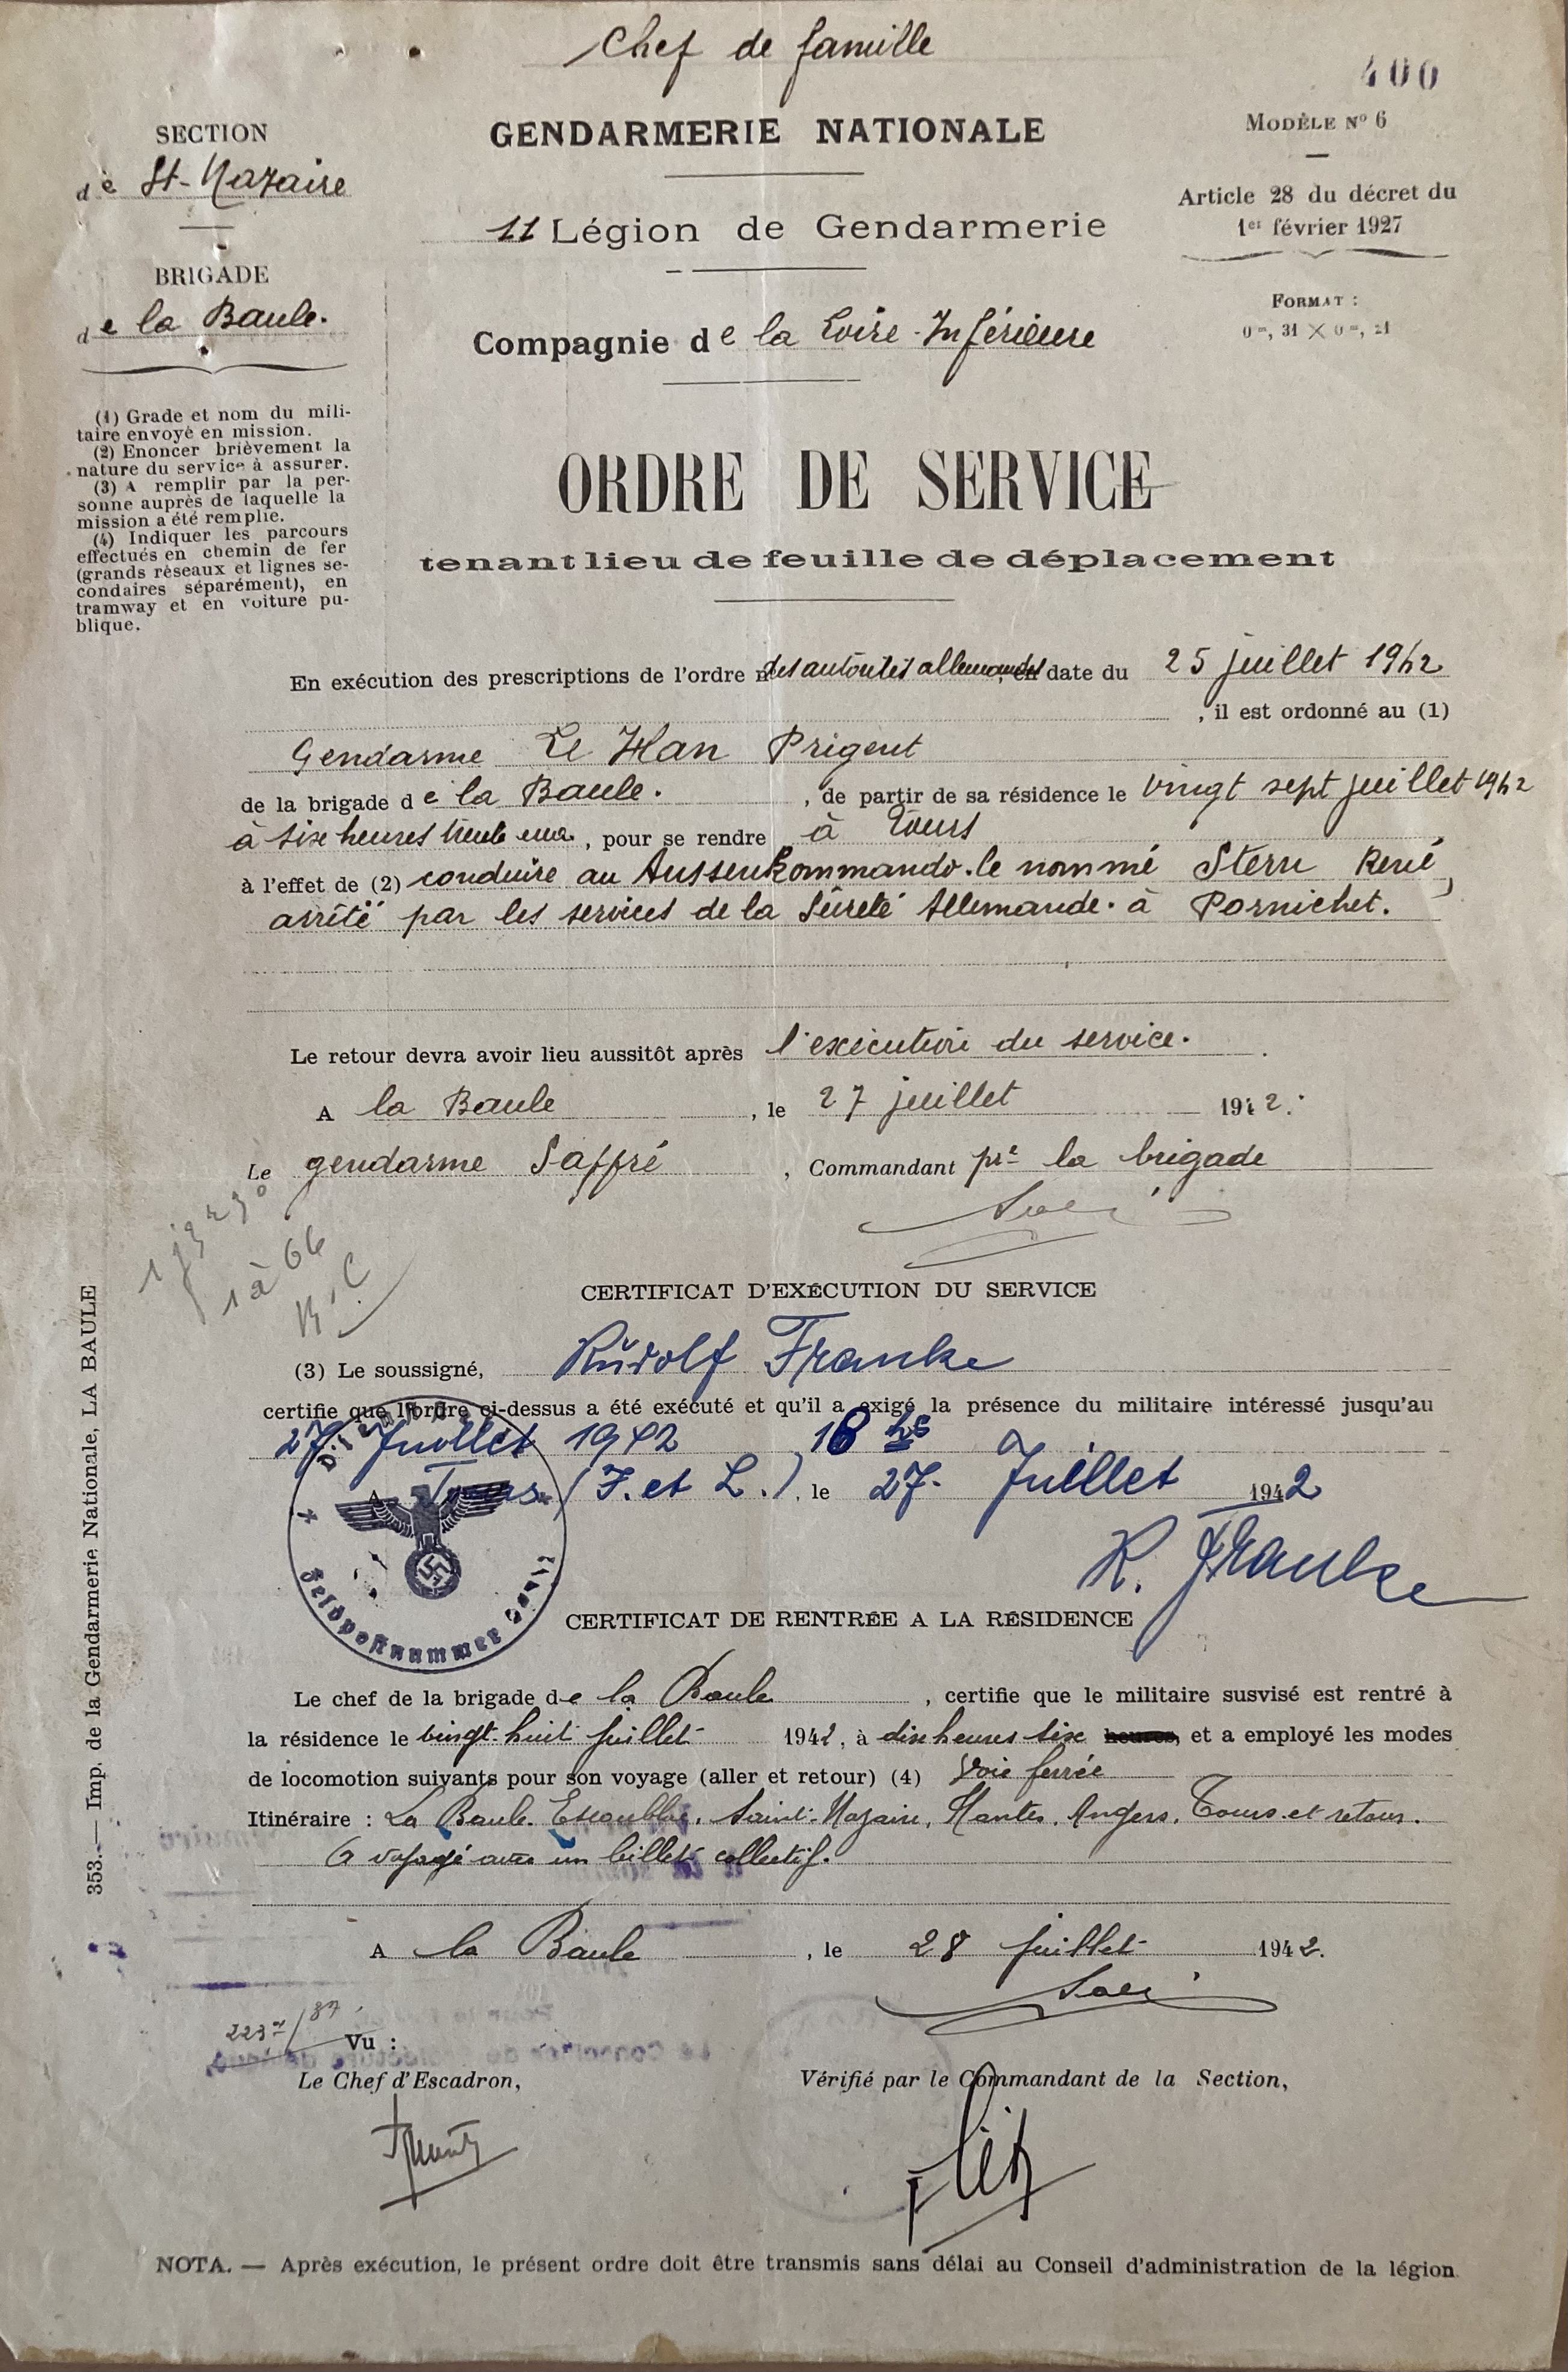 Chef de famille
400
SECTION
de St-Nazaire
BRIGADE
de la Baule.
GENDARMERIE NATIONALE
11 Légion de Gendarmerie
Compagnie de la Loire-Inférieure
MODÈLE Nº 6
Article 28 du décret du
1er février 1927
FORMAT :
0m, 31 × 0m, 21
(1) Grade et nom du mili-
taire envoyé en mission.
(2) Enoncer brièvement la
nature du service à assurer.
(3) A remplir par la per-
sonne auprès de laquelle la
mission a été remplie.
(4) Indiquer les parcours
effectués en chemin de fer
(grands réseaux et lignes se-
condaires séparément), en
tramway et en voiture pu-
blique.
ORDRE DE SERVICE
tenant lieu de feuille de déplacement
En exécution des prescriptions de l'ordre des autorités allemandes, en date du 25 juillet 1942
, il est ordonné au (1)
Gendarme Le Han Prigent
de la brigade de la Baule. , de partir de sa résidence le vingt sept juillet 1942
à six heures trente une , pour se rendre à Tours
à l'effet de (2) conduire au Aussenkommando. le nommé Stern René,
arrêté par les services de la Sûreté Allemande. à Pornichet.
Le retour devra avoir lieu aussitôt après l'exécution du service.
A la Baule , le 27 juillet 1942.
Le gendarme Saffré , Commandant pr la brigade
1 à 66
CERTIFICAT D'EXÉCUTION DU SERVICE
(3) Le soussigné, Rudolf Franke
certifie que l'ordre ci-dessus a été exécuté et qu'il a exigé la présence du militaire intéressé jusqu'au
27. Juillet 1942 18 hs
A Tours (I. et L.), le 27. Juillet 1942
R. Franke
Feldpostnummer
CERTIFICAT DE RENTRÉE A LA RÉSIDENCE
Le chef de la brigade de la Baule , certifie que le militaire susvisé est rentré à
la résidence le vingt-huit juillet 1942, à dix heures six heures, et a employé les modes
de locomotion suivants pour son voyage (aller et retour) (4) Voie ferrée
Itinéraire : La Baule-Escoublac, Saint-Nazaire, Nantes, Angers, Tours et retour.
A voyagé avec un billet collectif.
A la Baule , le 28 juillet 1942.
Vu :
Le Chef d'Escadron,
Vérifié par le Commandant de la Section,
NOTA. — Après exécution, le présent ordre doit être transmis sans délai au Conseil d'administration de la légion
353.— Imp. de la Gendarmerie Nationale, LA BAULE